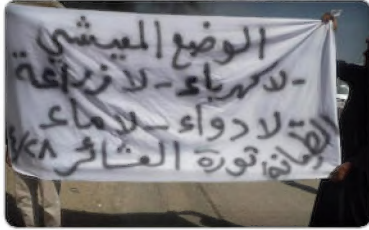 الوضع المعيشي
- لا كهرباء - لا زراعة
لا دواء - لا ماء
ثورة العشائر ٤/٢٨